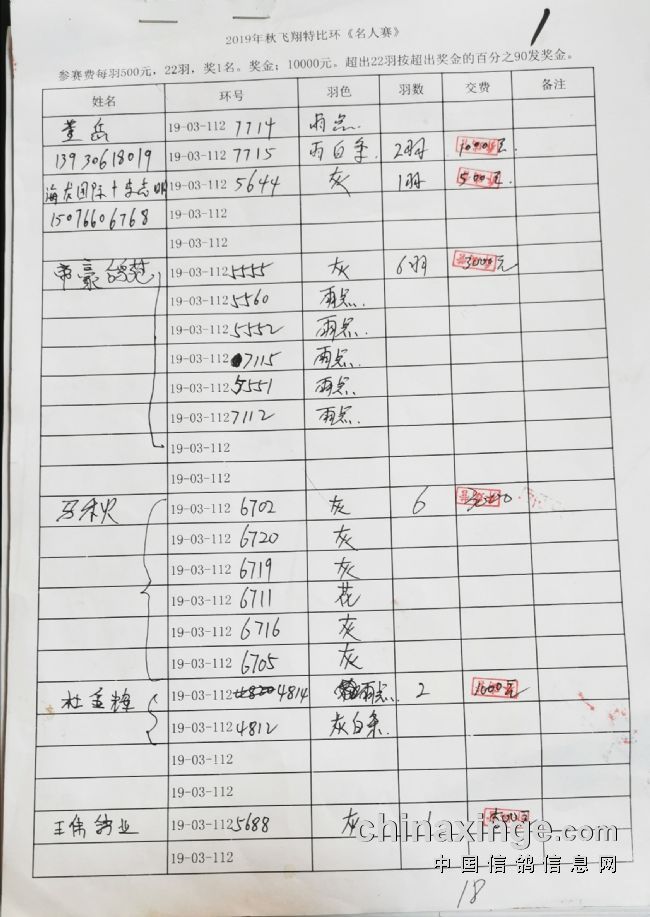 1
2019年秋飞翔特比环《名人赛》
参赛费每羽500元，22羽，奖1名。奖金：10000元。超出22羽按超出奖金的百分之90发奖金。
姓名 环号 羽色 羽数 交费 备注
董岳 19-03-112 7714 雨点
13930618019 19-03-112 7715 雨白条 2羽 1000元
19-03-112 5644 灰 1羽 500元
15076606768 19-03-112
19-03-112
帝豪鸽苑 19-03-112 5555 灰 6羽 3000元
19-03-112 5560 雨点
19-03-112 5552 雨点
19-03-112 7115 雨点
19-03-112 5551 雨点
19-03-112 7112 雨点
19-03-112
19-03-112
马秋 19-03-112 6702 灰 6
19-03-112 6720 灰
19-03-112 6719 灰
19-03-112 6711 花
19-03-112 6716 灰
19-03-112 6705 灰
杜金辉 19-03-112 4814 雨点 2 1000元
19-03-112 4812 灰白条
19-03-112
19-03-112
王伟鸽业 19-03-112 5688 灰 500元
19-03-112
chinaxinge.com
中国信鸽信息网
18